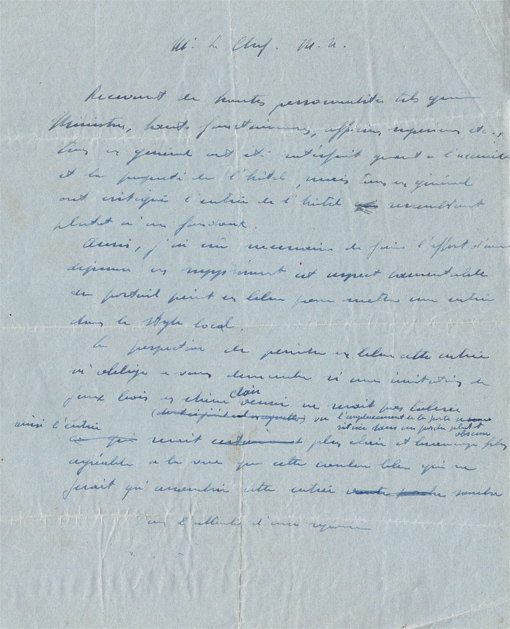 Mr Le Chef. M. U.
Recevant de hautes personnalités tels que
Ministres, hauts fonctionnaires, officiers superieurs etc..,
tous en général ont été satisfait quant a l'accueil
et la propreté de l'hôtel, mais tous en général
ont critiqué l'entrée de l'hôtel ressemblant
plutot a un
Aussi, j'ai cru necessaire de faire l'effort d'une
depense en supprimant cet aspect lamentable
du portail peint en bleu pour mettre une entrée
dans le style local.
La perspective de peindre en bleu cette entrée
m'oblige a vous demander si une imitation de
faux bois en chêne clair vernis ne serait pas tolérée
(
) vu l'emplacement de la porte
située dans un porche plutot
obscur
ainsi l'entrée
serait plus claire et beaucoup plus
agréable a la vue que cette couleur bleu qui ne
ferait qu'assombrir cette entrée sombre
en l'attente d'une reponse